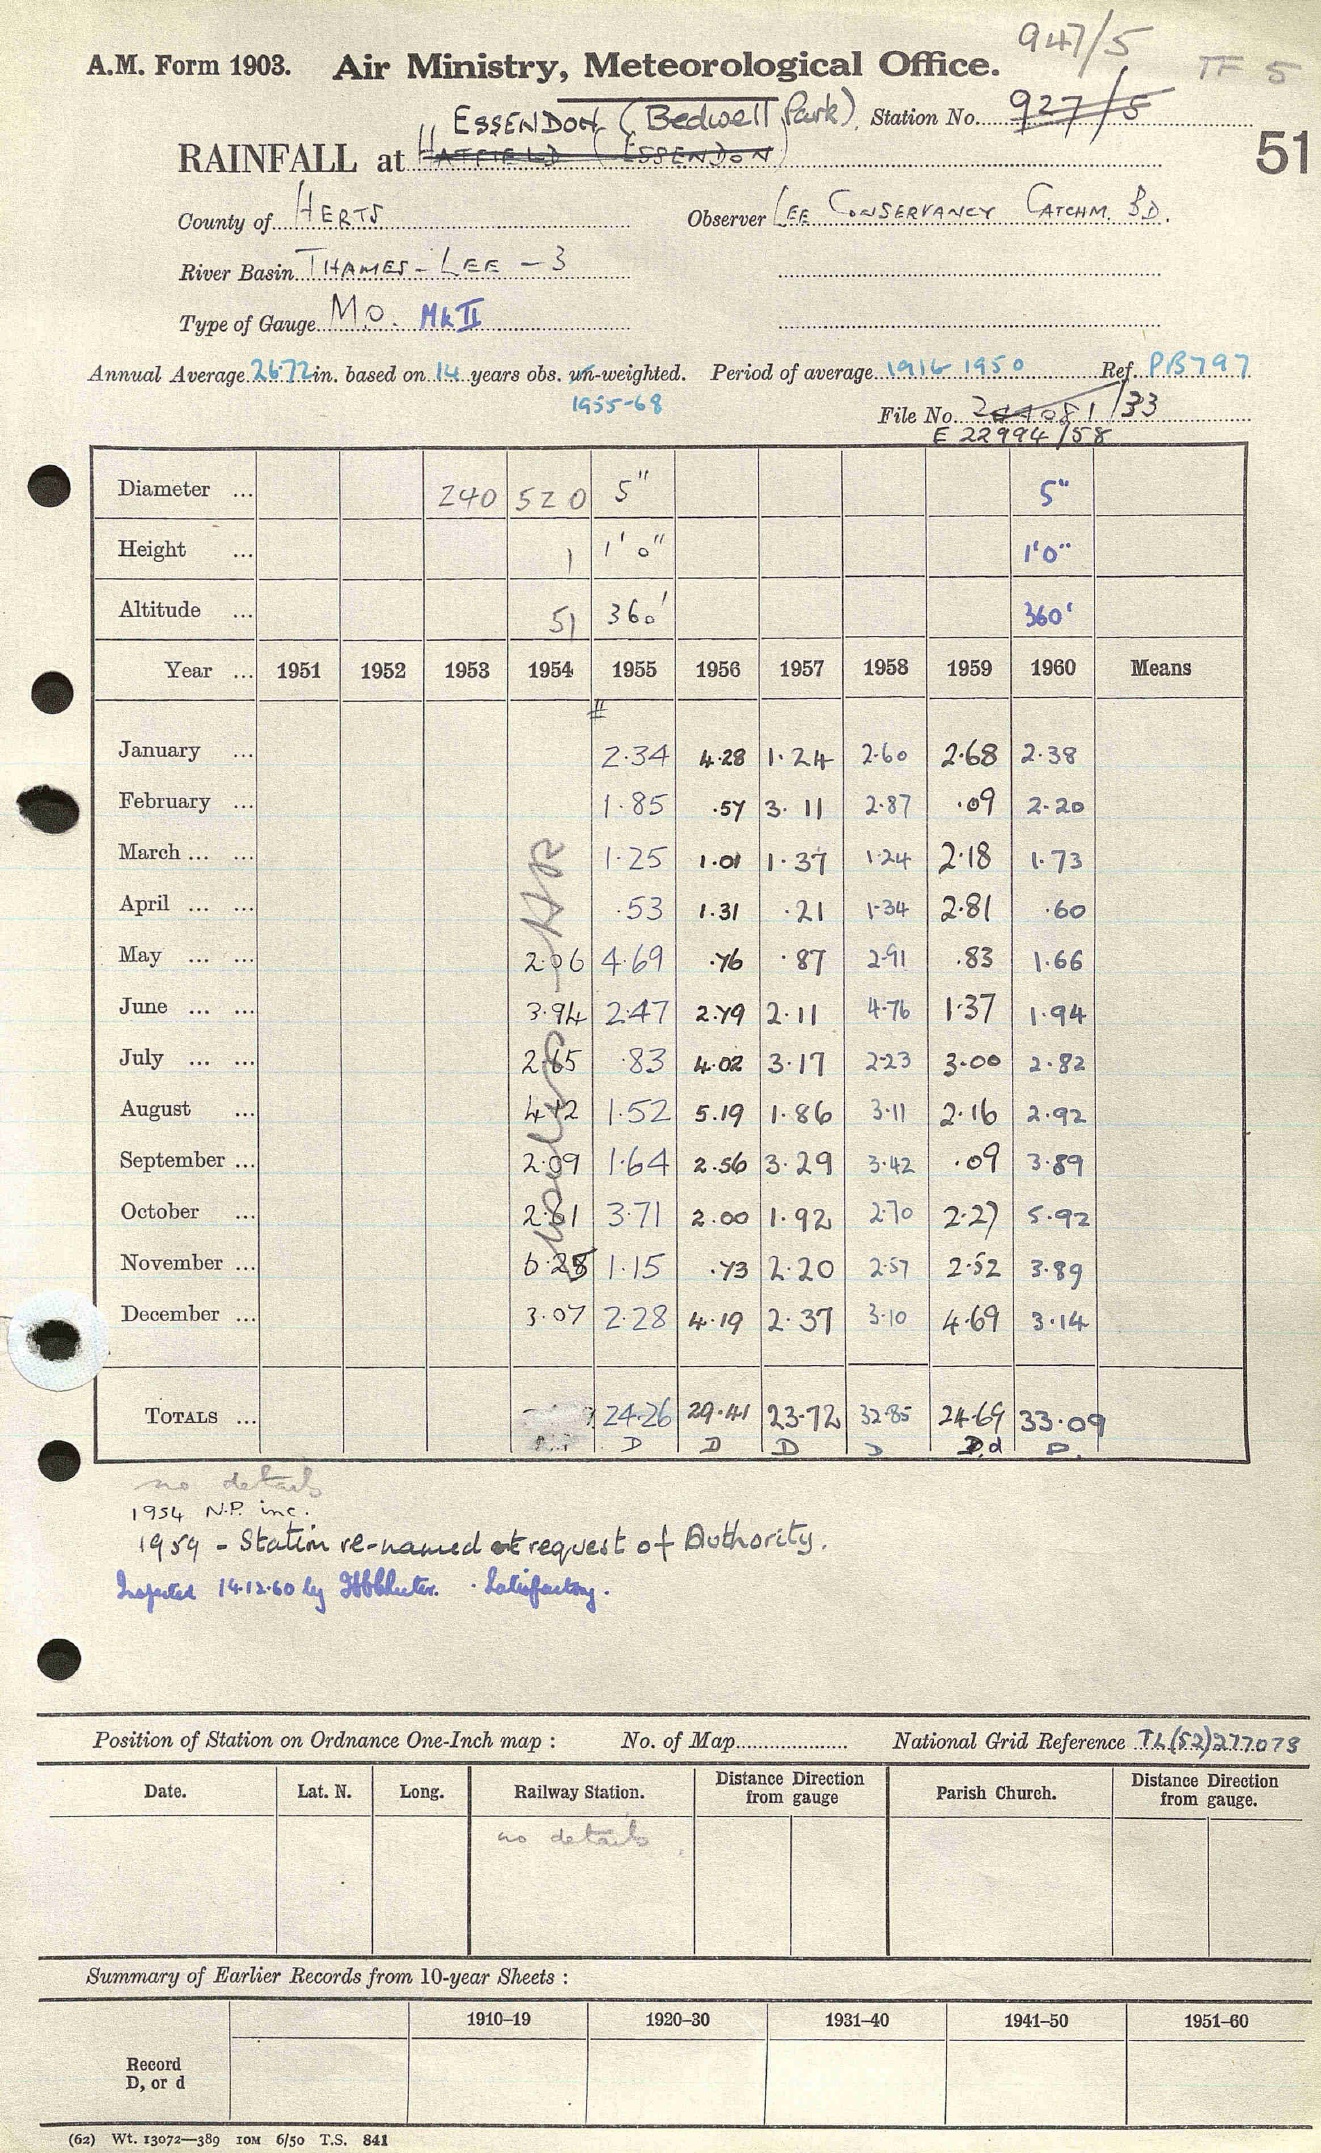 947/5
TF 5
A.M. Form 1903. Air Ministry, Meteorological Office.
ESSENDON (Bedwell Park). Station No. 927/5
RAINFALL at HATFIELD (ESSENDON)
51
County of HERTS Observer LEE CONSERVANCY CATCHM. BD.
River Basin THAMES - LEE - 3
Type of Gauge M.O. Mk II
Annual Average 26.72 in. based on 14 years obs. un-weighted. Period of average 1916 1950 Ref. PB797
1955-68
File No. /33
E 22994/58
Diameter ... 240 520 5" 5"
Height ... 1 1'0" 1'0"
Altitude ... 51 360' 360'
Year ... 1951 1952 1953 1954 1955 1956 1957 1958 1959 1960 Means
#
January ... 2.34 4.28 1.24 2.60 2.68 2.38
February ... 1.85 .57 3.11 2.87 .09 2.20
March ... ... 1.25 1.01 1.37 1.24 2.18 1.73
April ... ... .53 1.31 .21 1.34 2.81 .60
May ... ... 2.06 4.69 .76 .87 2.91 .83 1.66
June ... ... 3.94 2.47 2.79 2.11 4.76 1.37 1.94
July ... ... 2.65 .83 4.02 3.17 2.23 3.00 2.82
August ... 4.12 1.52 5.19 1.86 3.11 2.16 2.92
September ... 2.09 1.64 2.56 3.29 3.42 .09 3.89
October ... 2.61 3.71 2.00 1.92 2.70 2.27 5.92
November ... 6.28 1.15 .73 2.20 2.57 2.52 3.89
December ... 3.07 2.28 4.19 2.37 3.10 4.69 3.14
TOTALS ... 24.26 29.41 23.72 32.85 24.69 33.09
D D D D D.d D.
no details
1954 N.P. inc.
1959 - Station re-named at request of Authority.
Inspected 14.12.60 by Satisfactory.
Position of Station on Ordnance One-Inch map : No. of Map National Grid Reference TL(52)277078
Date. Lat. N. Long. Railway Station. Distance Direction from gauge Parish Church. Distance Direction from gauge.
no details
Summary of Earlier Records from 10-year Sheets :
1910–19 1920–30 1931–40 1941–50 1951–60
Record
D, or d
(62) Wt. 13072—389 10M 6/50 T.S. 841